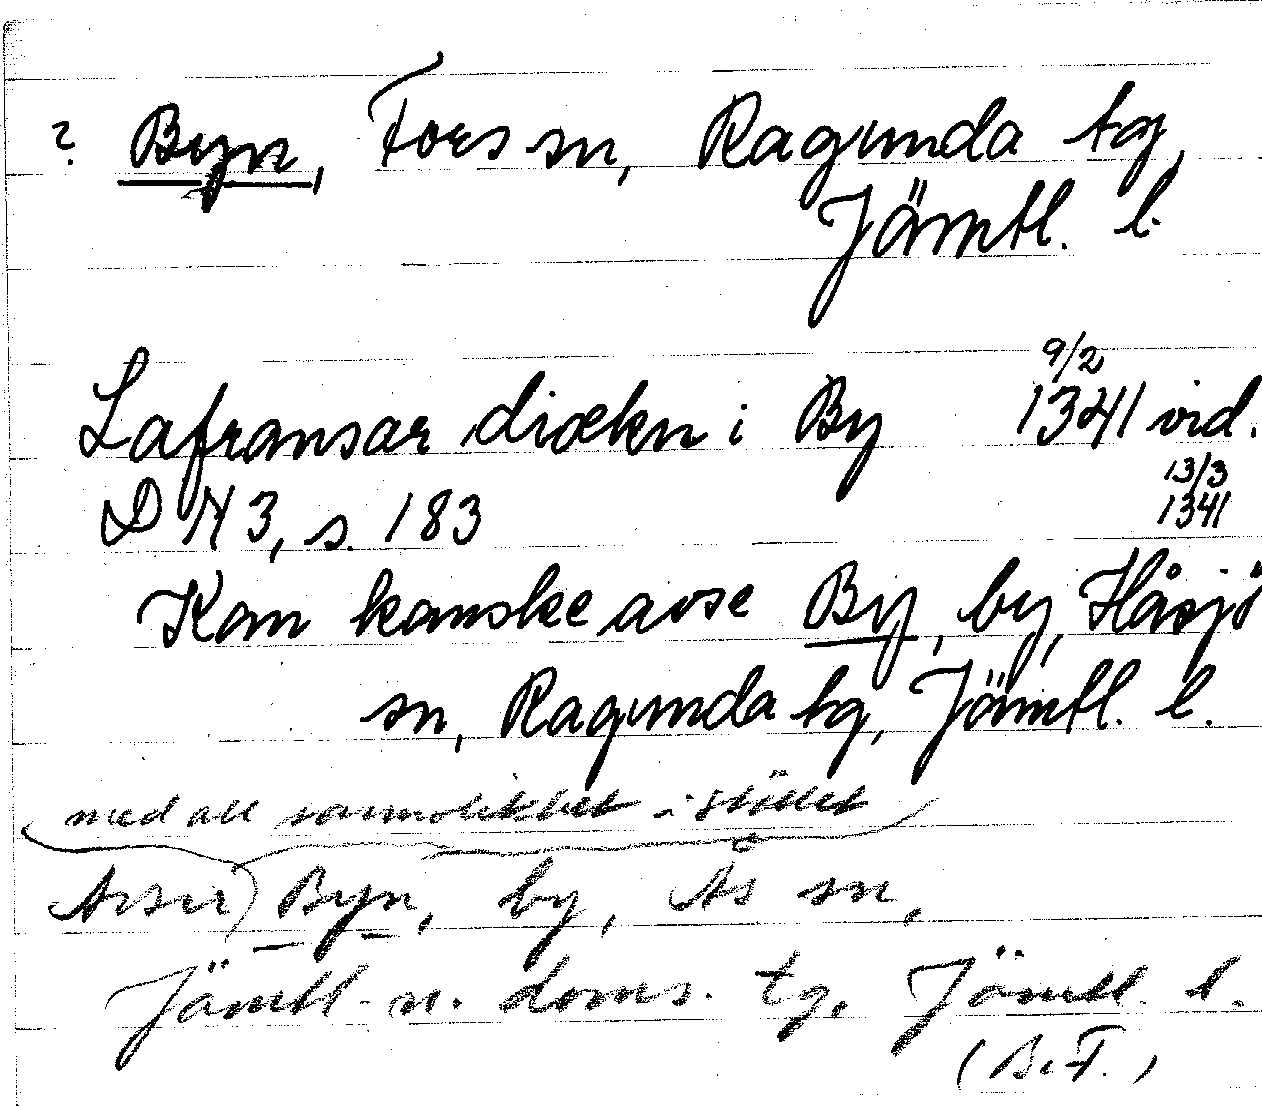 ? Byn, Fors sn, Ragunda tg,
Jämtl. l.
9/2
Lafransar diækn i By 1341 vid.
13/3
DN 3, s. 183 1341
Kan kanske avse By, by, Håsjö
sn, Ragunda tg, Jämtl. l.
med all sannolikhet i stället
Avser Byn, by, Ås sn,
Jämtl. n. doms. tg, Jämtl. l.
(B.F.)